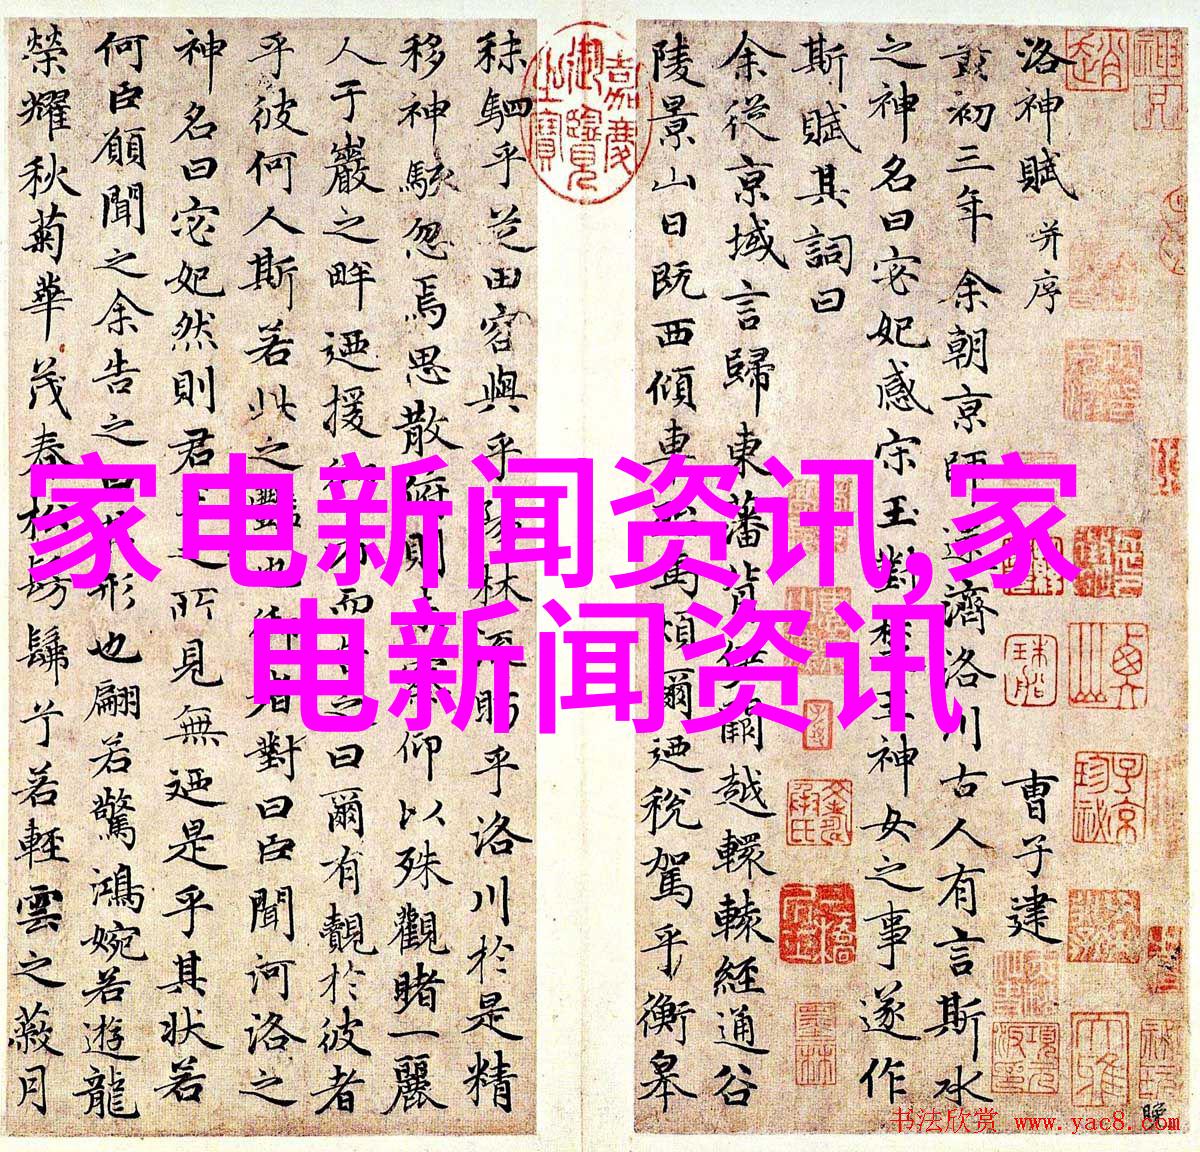 洛神賦 并序
曹子建
黃初三年余朝京師還濟洛川古人有言斯水
之神名曰宓妃感宋玉對楚王神女之事遂作
斯賦其詞曰
余從京域言歸東藩背伊闕越轘轅經通谷
陵景山日既西傾車殆馬煩爾迺稅駕乎衡皋
秣駟乎芝田容與乎陽林流眄乎洛川於是精
移神駭忽焉思散俯則未察仰以殊觀睹一麗
人于巖之畔迺援御者而告之曰爾有覿於彼者
乎彼何人斯若此之豔也御者對曰臣聞河洛之
神名曰宓妃然則君王之所見無迺是乎其狀若
何臣願聞之余告之曰其形也翩若驚鴻婉若遊龍
榮耀秋菊華茂春松髣髴兮若輕雲之蔽月
嘉慶御覽之寶
家电新闻资讯,家
电新闻资讯
书法欣赏 www.yac8.com